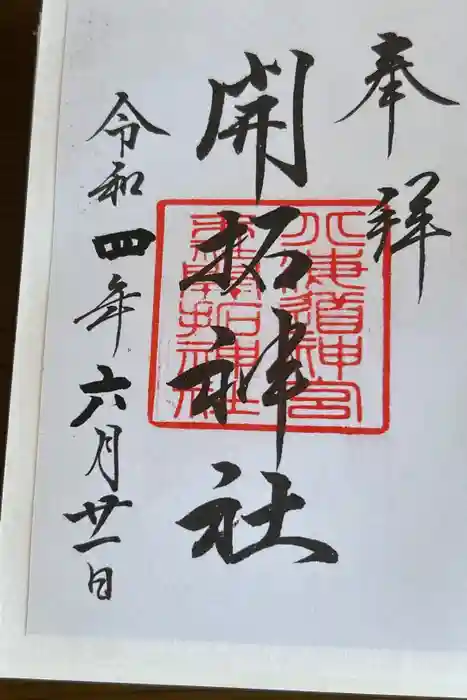 奉拝
開拓神社
北海道神宮
末社開拓神社
令和四年六月廿一日